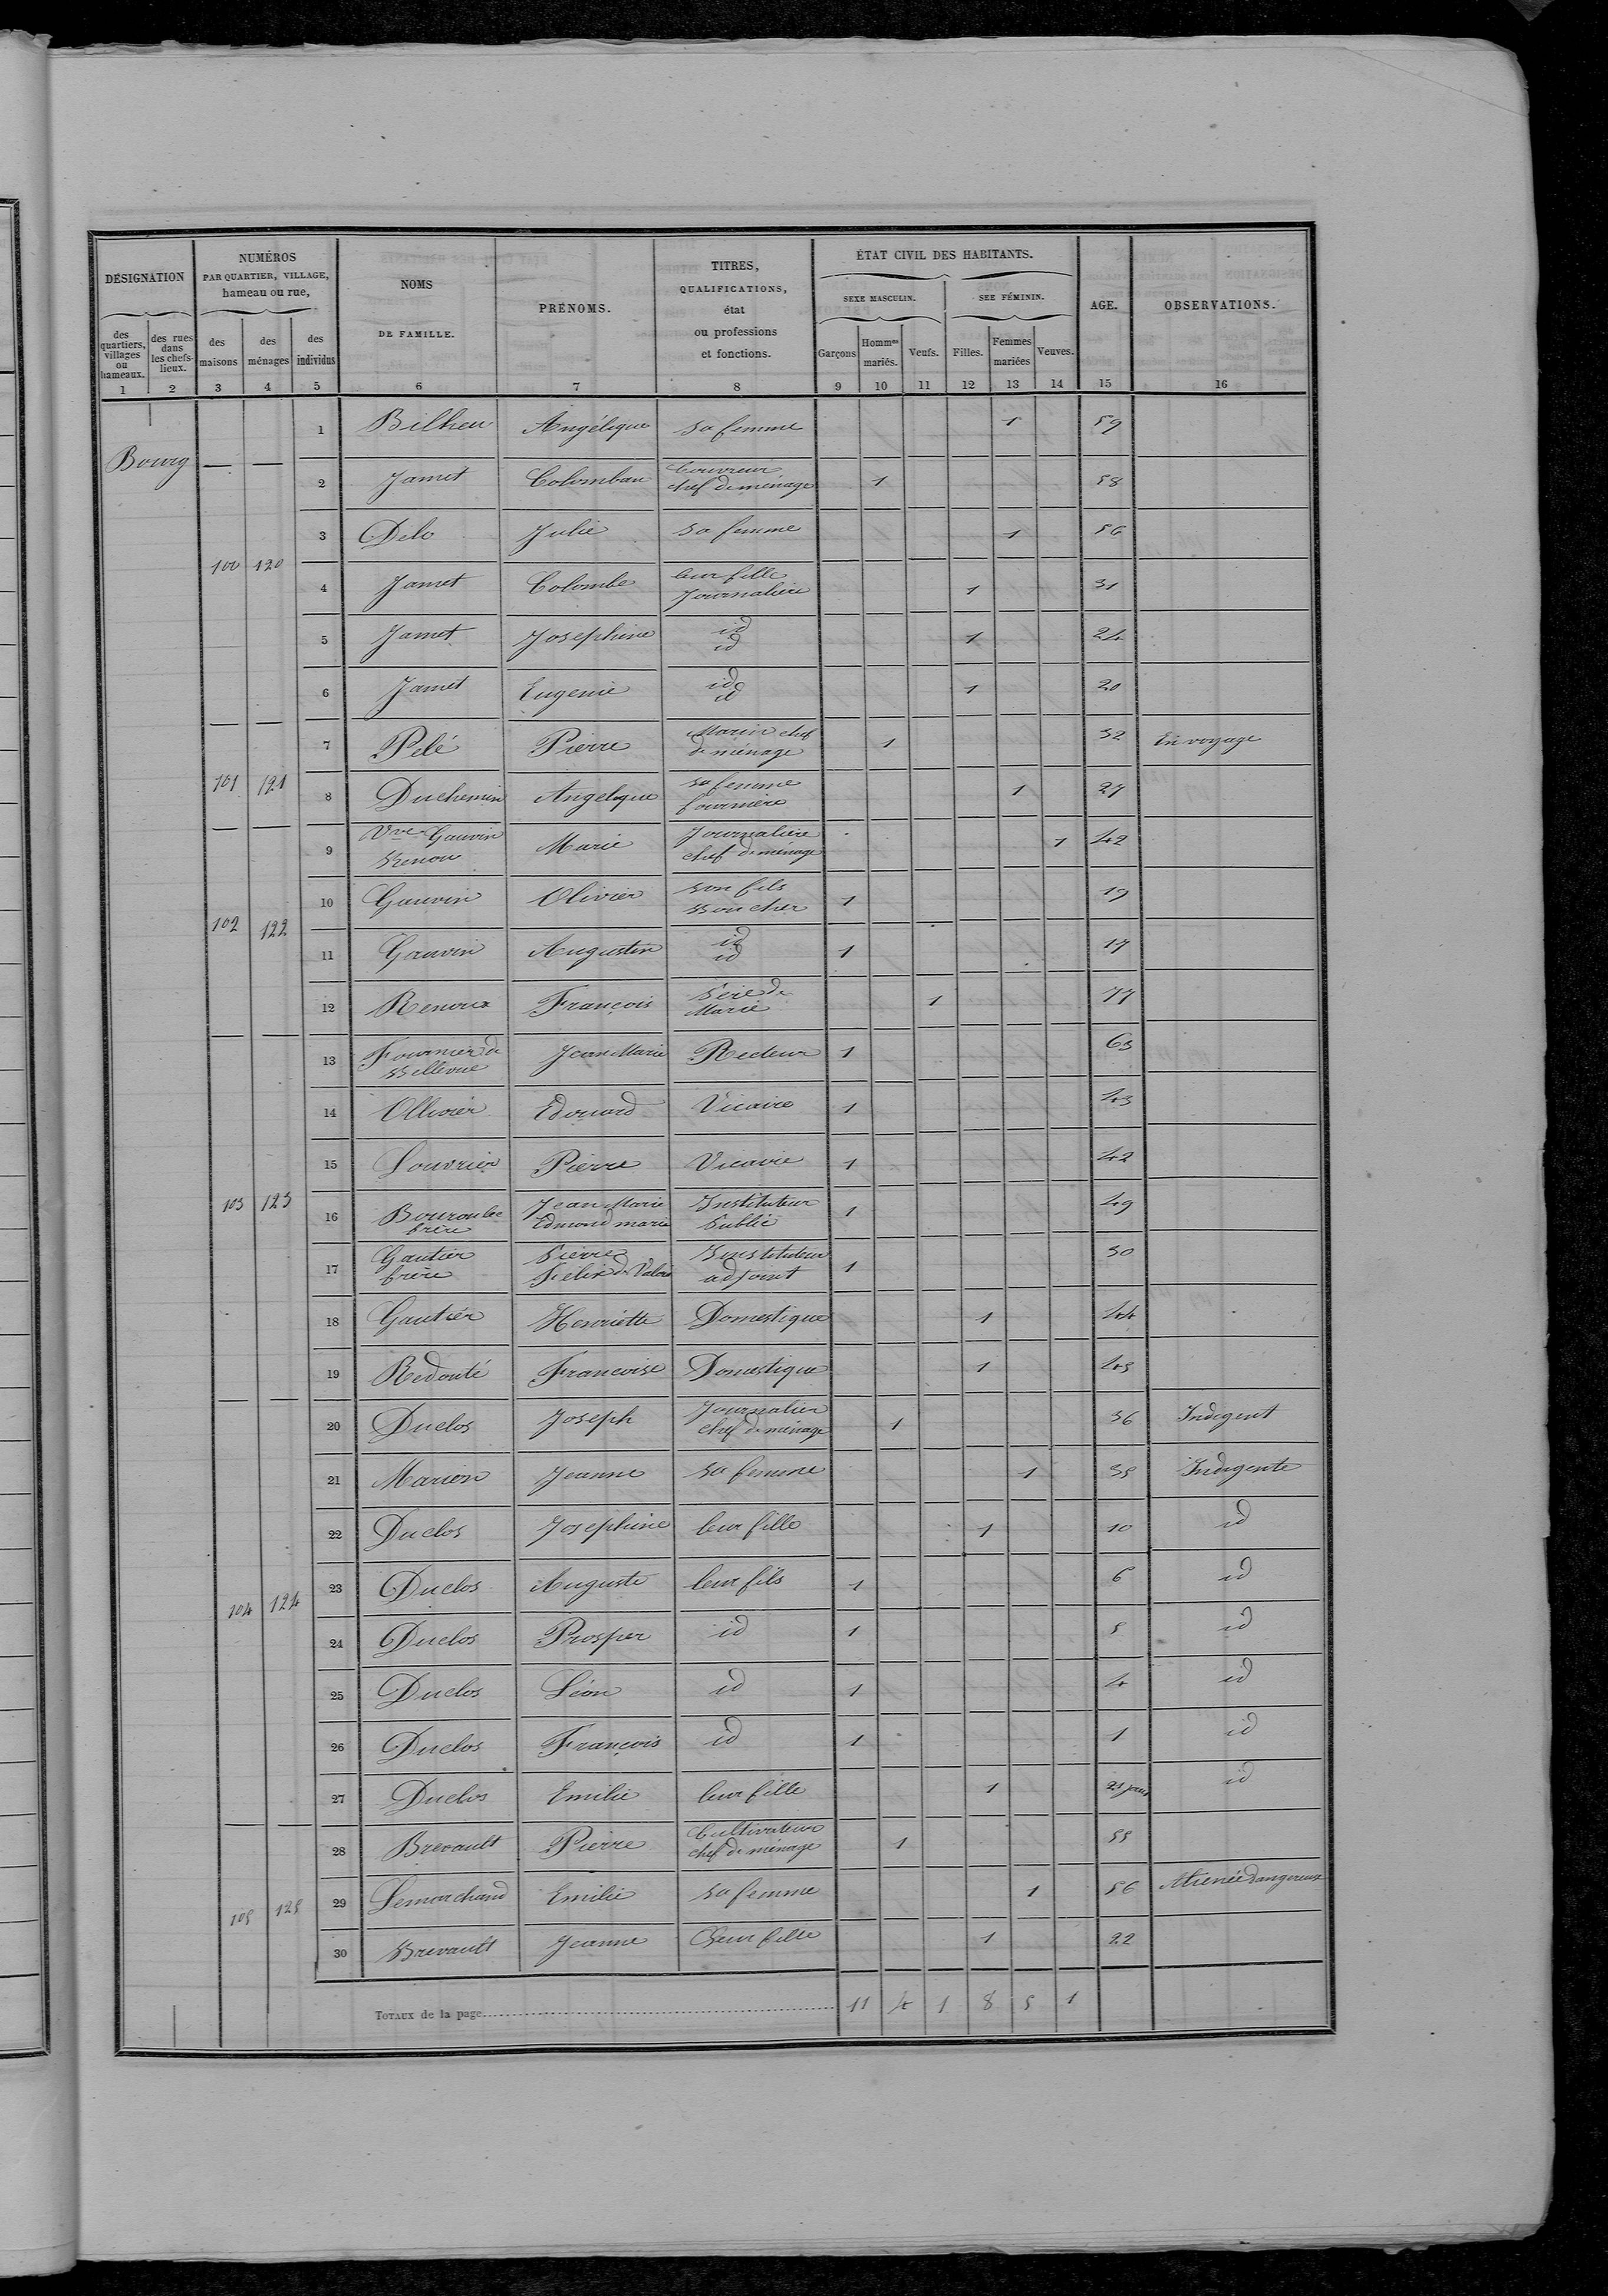 DÉSIGNATION NUMÉROS PAR QUARTIER, VILLAGE, hameau ou rue, NOMS DE FAMILLE. PRÉNOMS. TITRES, QUALIFICATIONS, état ou professions et fonctions. ÉTAT CIVIL DES HABITANTS. AGE. OBSERVATIONS.
SEXE MASCULIN. SEE FÉMININ.
des quartiers, villages ou hameaux. des rues dans les chefs-lieux. des maisons des ménages des individus Garçons Hommes mariés. Veufs. Filles. Femmes mariées Veuves.
1 2 3 4 5 6 7 8 9 10 11 12 13 14 15 16
1 Bilheu Angélique sa femme 1 59
Bourg
2 Jamet Colomban Couvreur chef de ménage 1 58
3 Delo Julie sa femme 1 56
100 120
4 Jamet Colombe leur fille Journalière 1 31
5 Jamet Joséphine id id 1 24
6 Jamet Eugenie id id 1 20
7 Pelé Pierre Marin chef de ménage 1 32 En voyage
101 121
8 Duchemin Angelique sa femme fournière 1 27
9 Vve Gauvin Renou Marie Journalière chef de ménage 1 42
10 Gauvin Olivier son fils Boucher 1 19
102 122
11 Gauvin Augustin id id 1 17
12 Renoux François Père de Marie 1 77
13 Fournier de Bellevue Jean Marie Recteur 1 63
14 Ollivier Edouard Vicaire 1 43
15 Louvrier Pierre Vicaire 1 42
103 123
16 frère Jean Marie Edmond marie Instituteur Public 1 49
17 Gautier frère Pierre Félix de Valois Instituteur adjoint 1 30
18 Gautier Henriette Domestique 1 44
19 Redouté Francoise Domestique 1 45
20 Duclos Joseph Journalier chef de ménage 1 36 Indigent
21 Marion Jeanne sa femme 1 35 Indigente
22 Duclos Joséphine leur fille 1 10 id
23 Duclos Auguste leur fils 1 6 id
104 124
24 Duclos Prosper id 1 5 id
25 Duclos Léon id 1 4 id
26 Duclos François id 1 1 id
27 Duclos Emilie leur fille 1 21 jours id
28 Brevault Pierre Cultivateur chef de ménage 1 55
29 Lemarchand Emilie sa femme 1 56 Alienée dangereuse
105 125
30 Brevault Jeanne leur fille 1 22
TOTAUX de la page 11 4 1 8 5 1